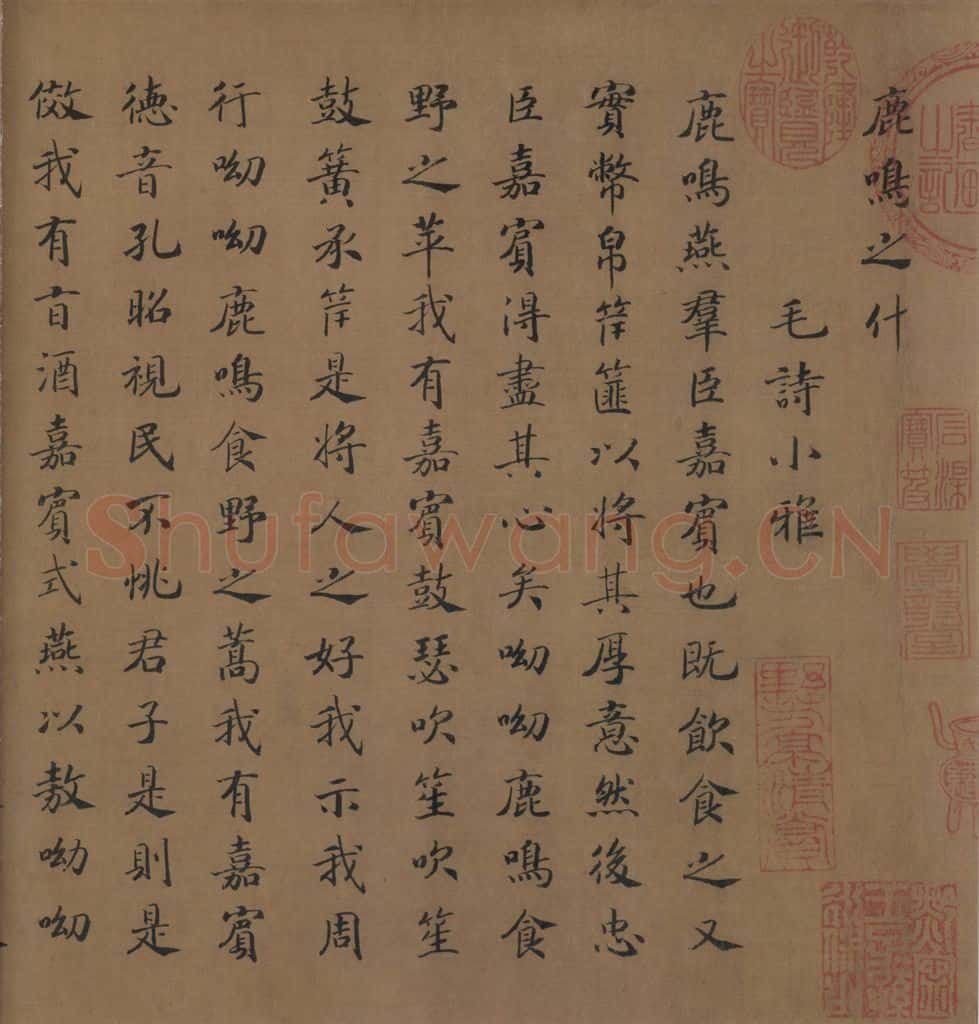 鹿鳴之什
毛詩小雅
鹿鳴燕羣臣嘉賓也既飲食之又
實幣帛筐篚以將其厚意然後忠
臣嘉賓得盡其心矣呦呦鹿鳴食
野之苹我有嘉賓鼓瑟吹笙吹笙
鼓簧承筐是將人之好我示我周
行呦呦鹿鳴食野之蒿我有嘉賓
德音孔昭視民不恌君子是則是
傚我有旨酒嘉賓式燕以敖呦呦
乾隆御覽之寶
Shufawang.CN